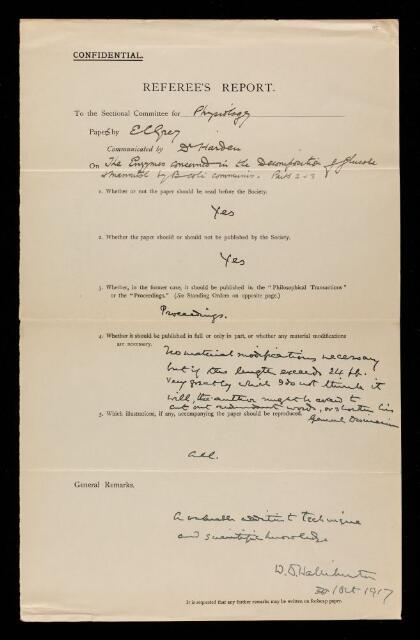 CONFIDENTIAL.
REFEREE'S REPORT.
To the Sectional Committee for Physiology
Papers by E C Grey
Communicated by Dr Harden
On The Enzymes concerned in the Decomposition of Glucose
& Mannitol by B coli communis. Parts 2 & 3
1. Whether or not the paper should be read before the Society.
Yes
2. Whether the paper should or should not be published by the Society.
Yes
3. Whether, in the former case, it should be published in the "Philosophical Transactions"
or the "Proceedings." (See Standing Orders on opposite page.)
Proceedings.
4. Whether it should be published in full or only in part, or whether any material modifications
are necessary.
No material modifications necessary
but if the length exceeds 24 pp.
very greatly which I do not think it
will, the author might be asked to
cut out redundant words, or shorten his
General Discussion
5. Which illustrations, if any, accompanying the paper should be reproduced.
All.
General Remarks.
A valuable addition to technique
and scientific knowledge
W. D. Halliburton
1 Oct 1917
It is requested that any further remarks may be written on foolscap paper.